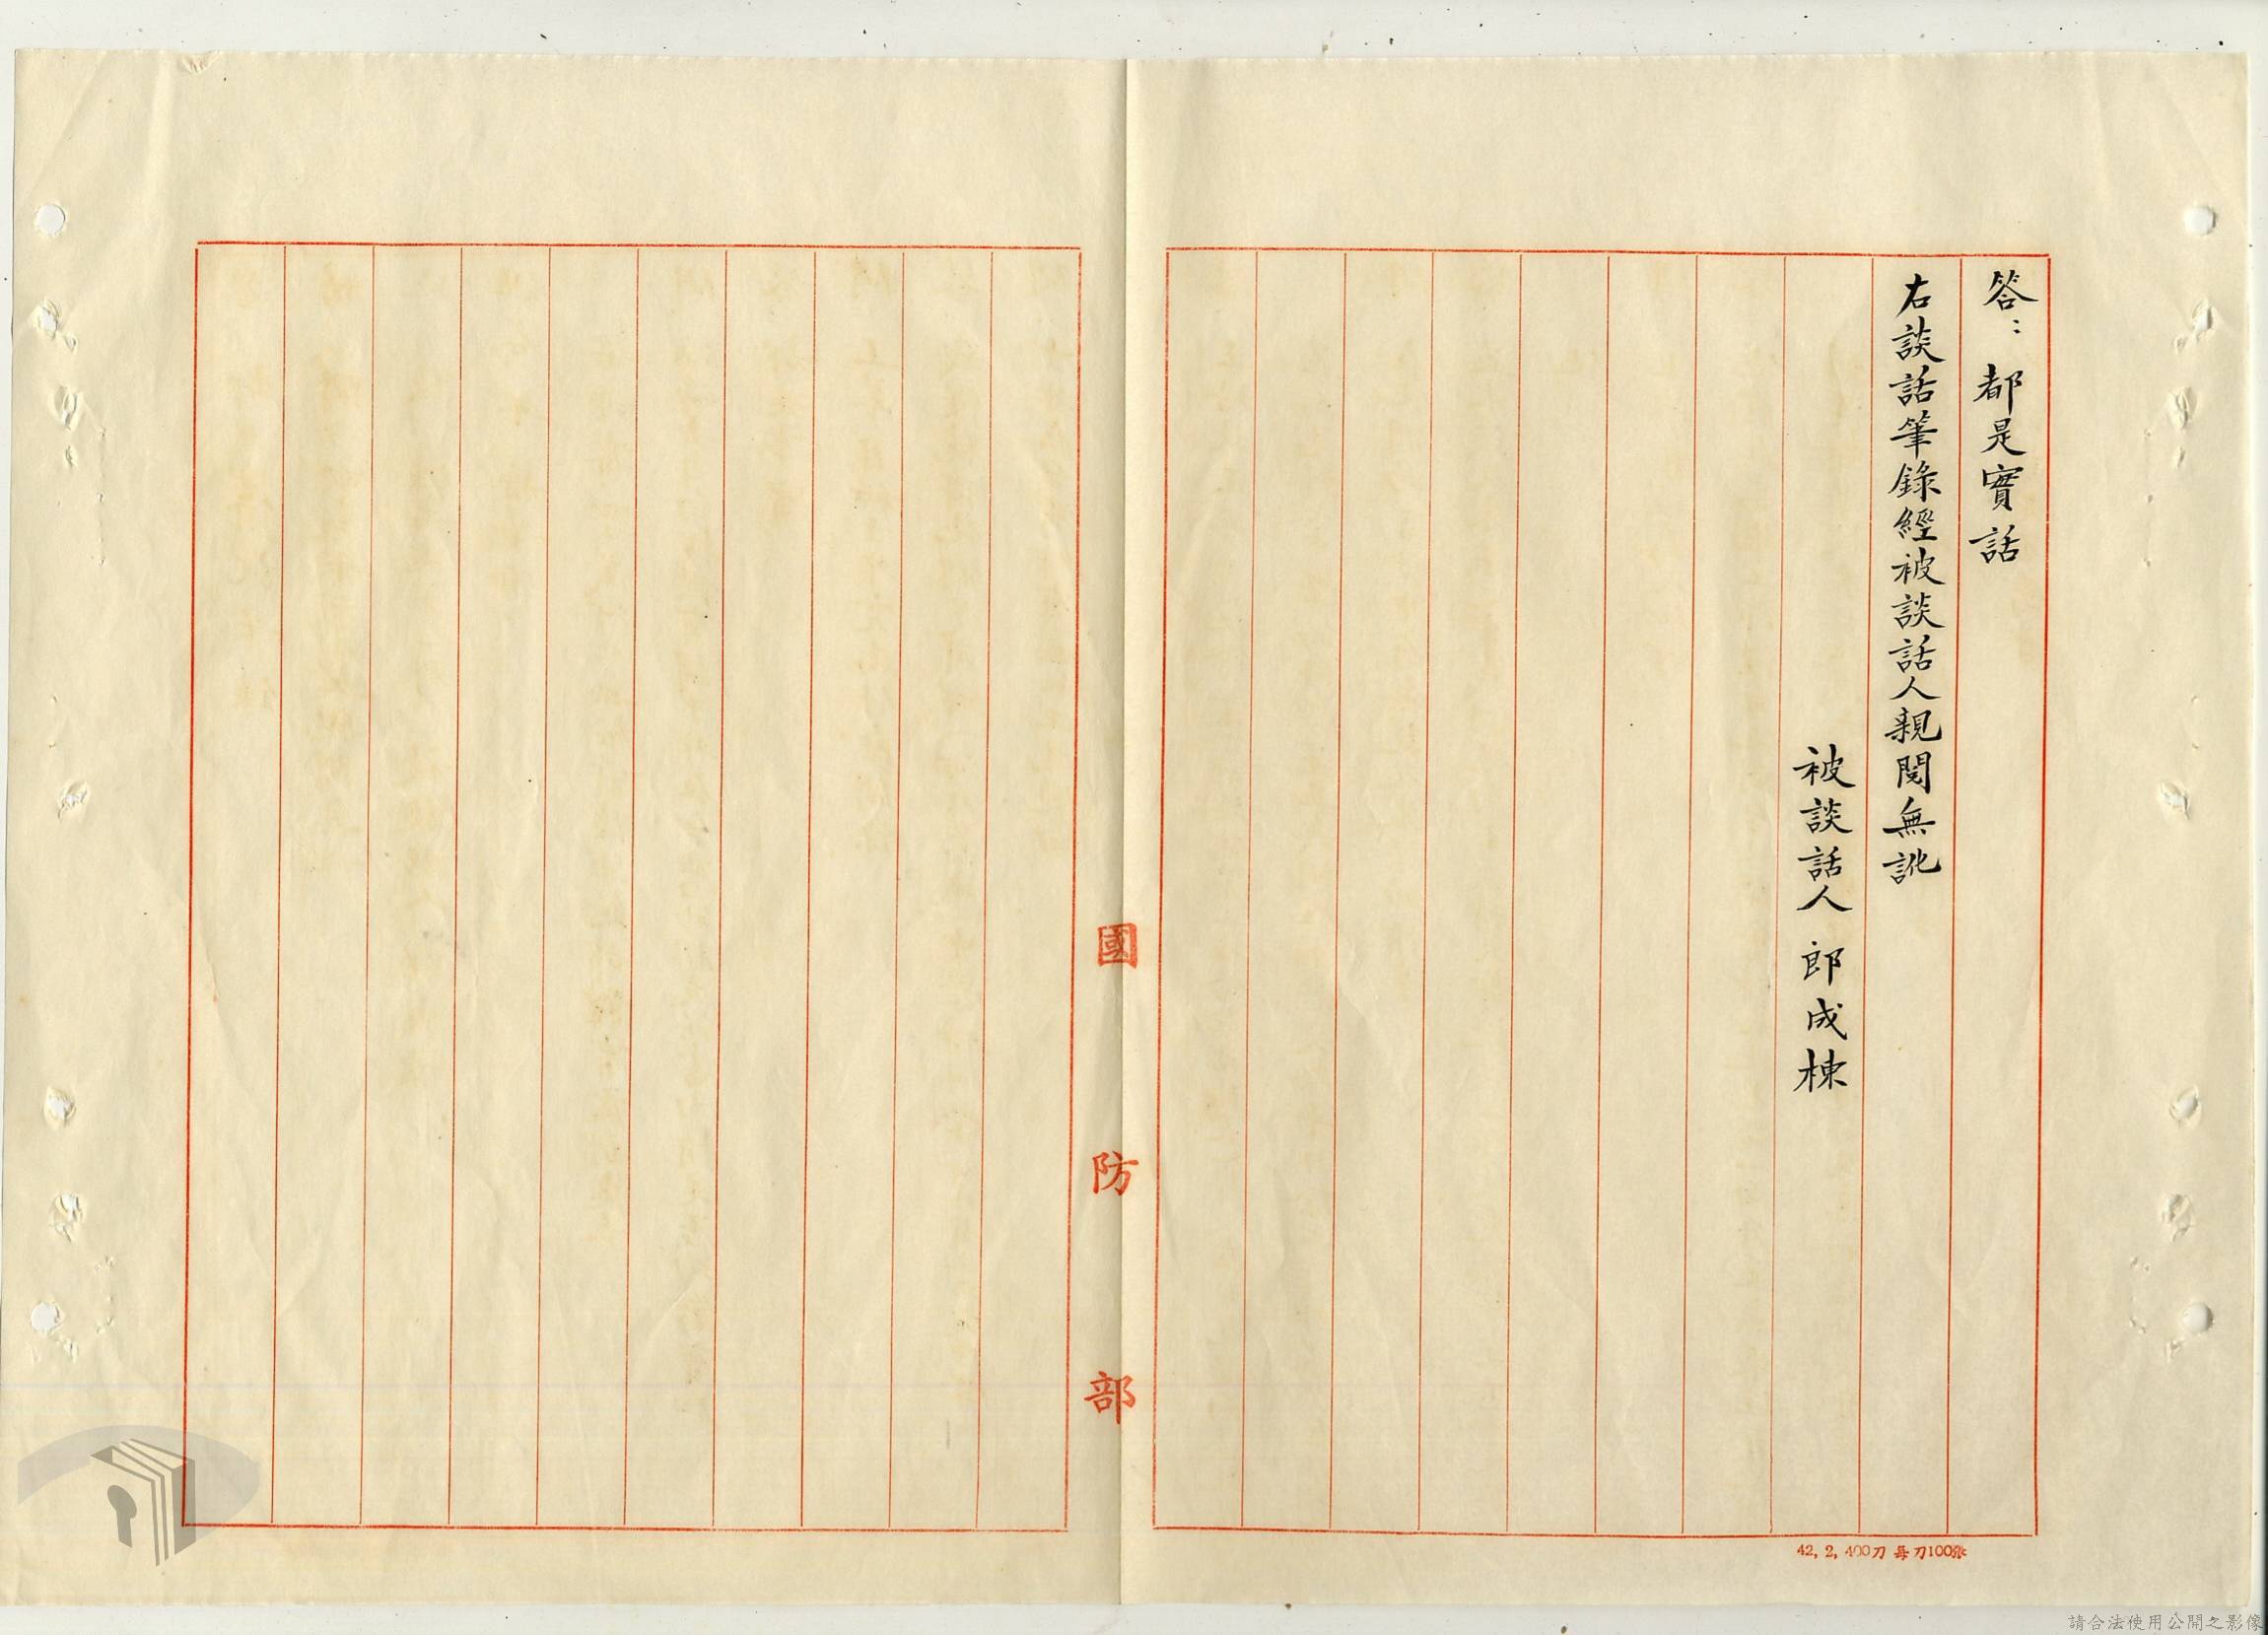 答：都是實話
右談話筆錄經被談話人親閱無訛
被談話人 郎成棟
國防部
42, 2, 400刀 每刀100張
請合法使用公開之影像